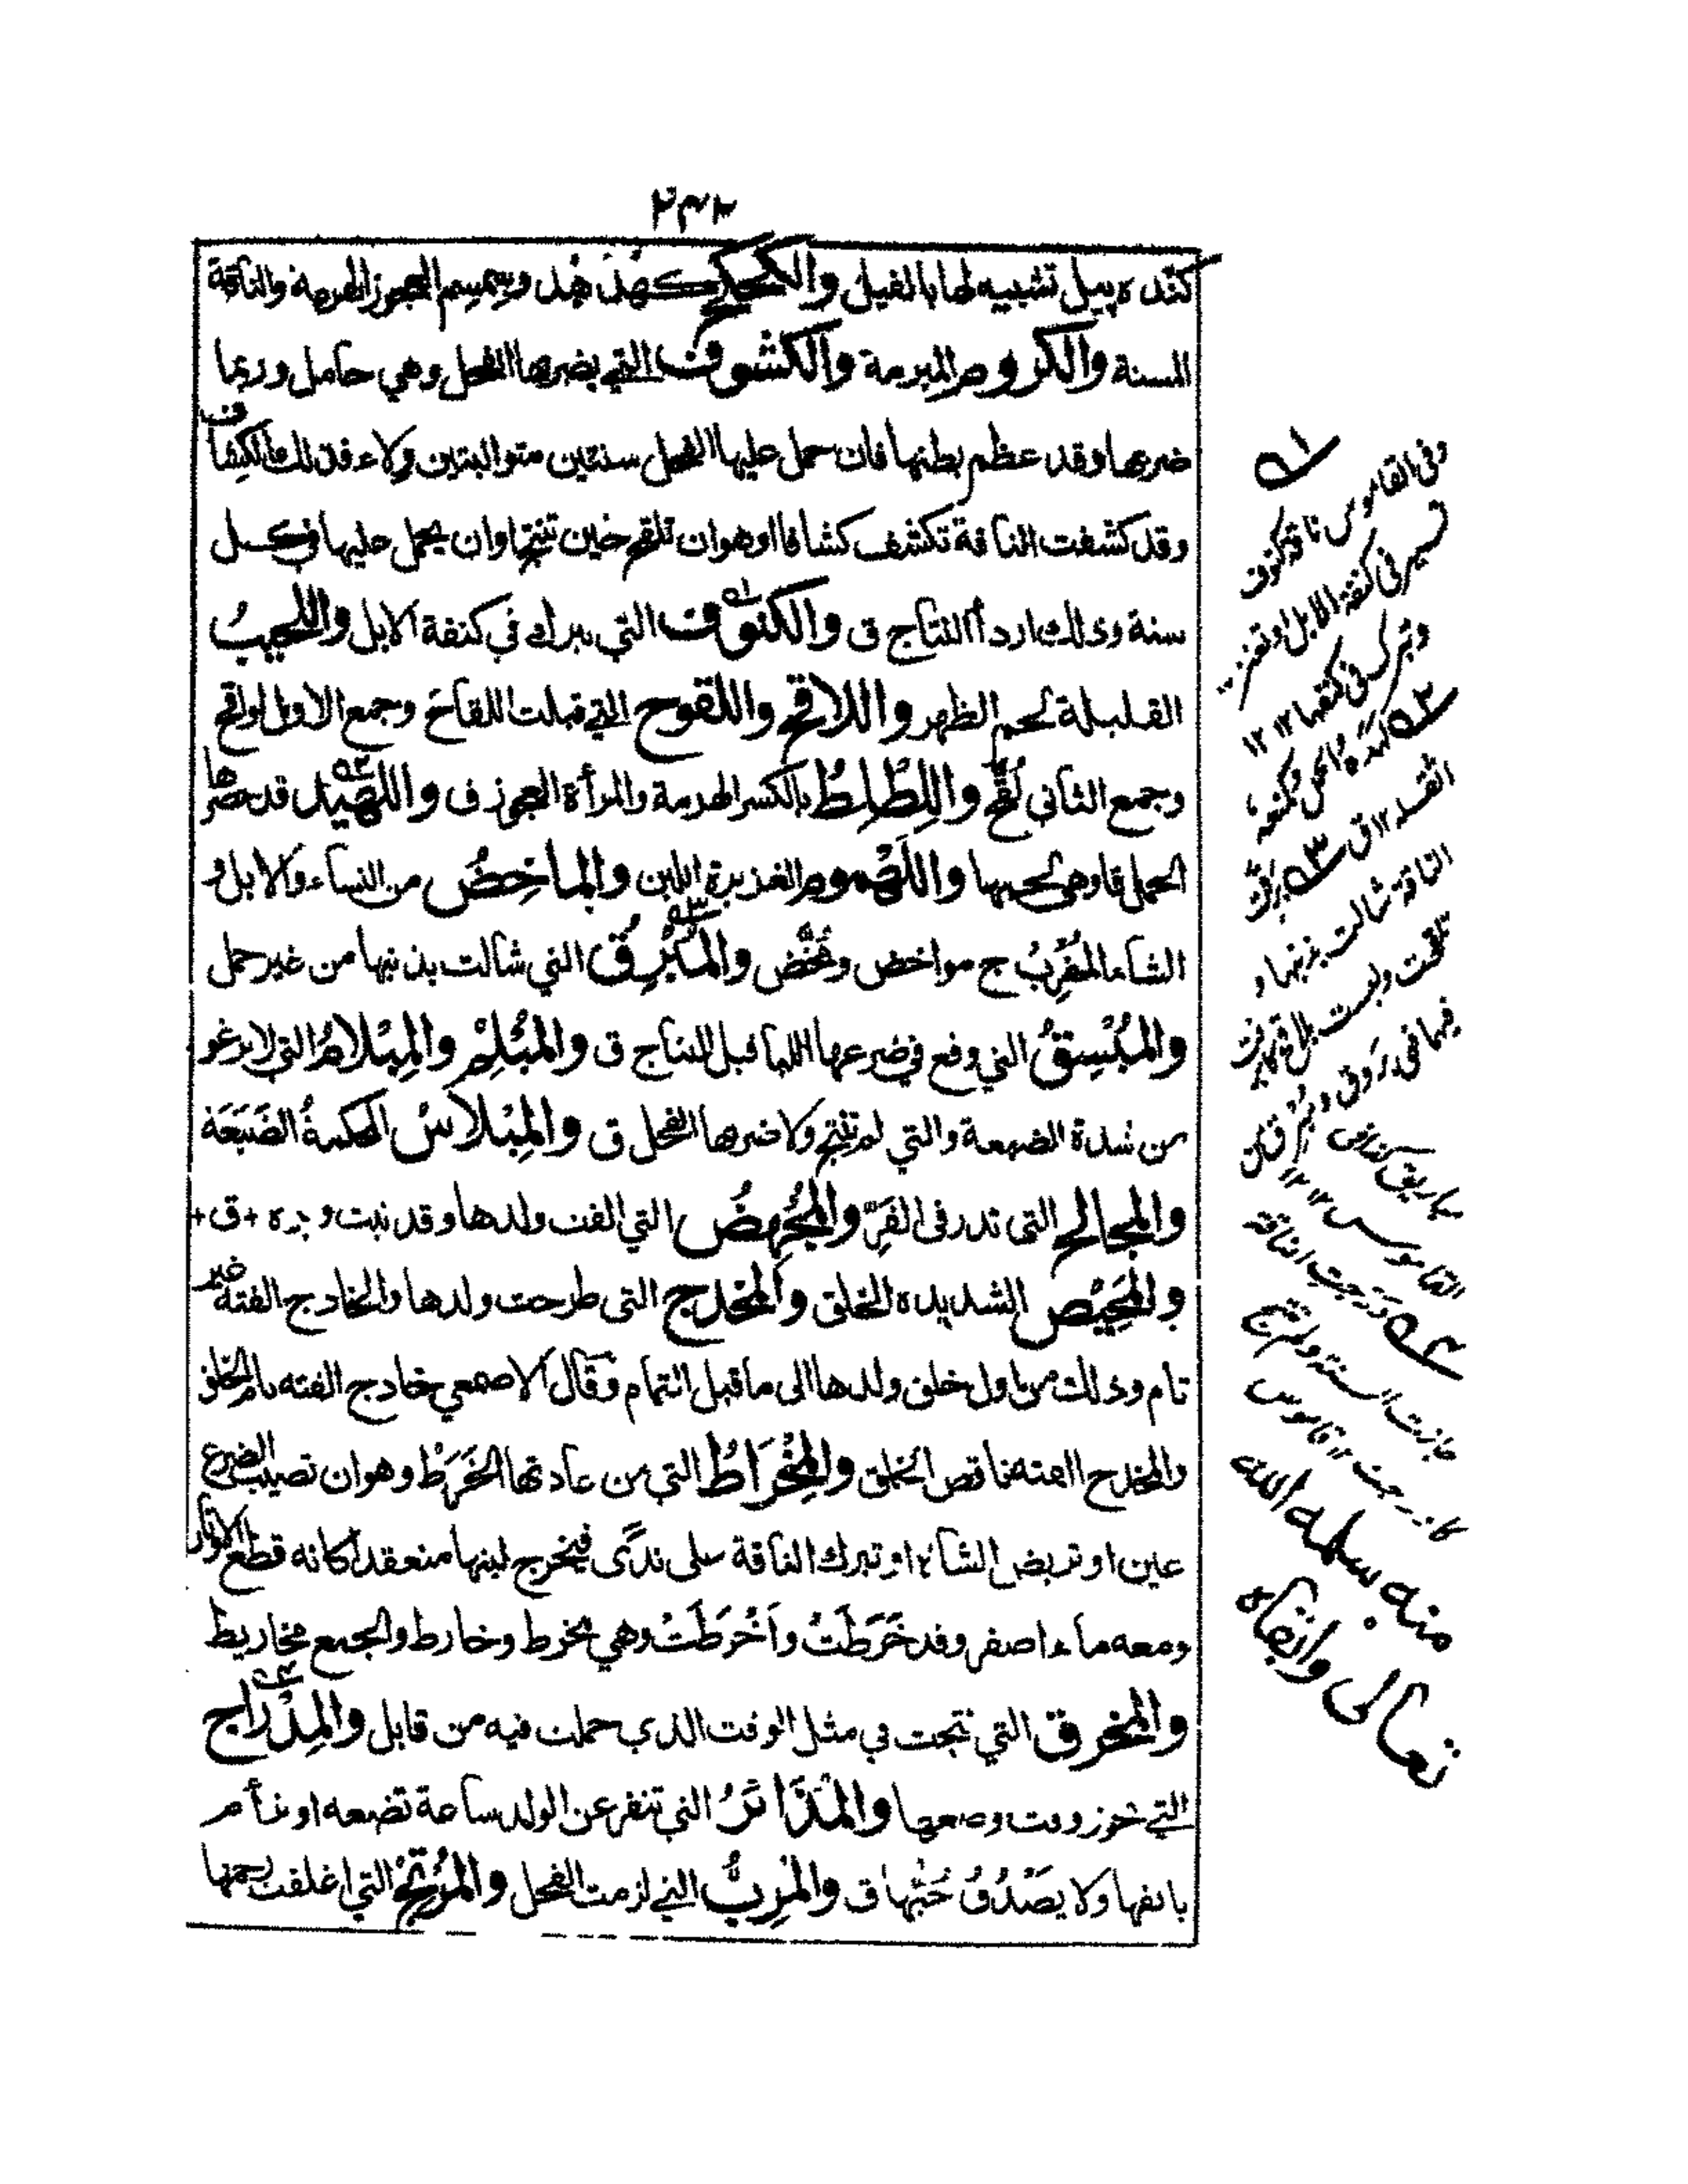 ٢٤٢
تشبيه لها بالفيل والكحكح كهدهد وسمسم العجوز الهرمة والناقة
المسنة والكروم الهرمة والكشوف التي يضربها الفحل وهي حامل وربما
ضربها وقد عظم بطنها فان حمل عليها الفحل سنتين متواليتين ولاء فذلك الكشاف
وقد كشفت الناقة تكشف كشافا اوهوان تلقح حين تنتج اوان يحمل عليها في كل
سنة وذلك اردأ النتاج ق والكنوف التي تبرك في كنفة الابل واللحيب
القليلة لحم الظهر واللاقح واللقوح التي قبلت اللقاح وجمع الاول لواقح
وجمع الثاني لُقُح واللِطْلِطُ بالكسر الهرمة والمرأة العجوز ف واللهيد قد
الحمل فاوهى لحمها واللهموم الغزيرة اللبن والماخِضُ من النساء والابل و
الشاء المُقْرِبُ ج مواخض ومُخَّض والمُبْرِق التي شالت بذنبها من غير حمل
والمُبْسِقُ التي وقع في ضرعها اللبأ قبل النتاج ق والمُبْلِمُ والمِبْلامُ التي لا ترغو
من شدة الضبعة والتي لم تنتج ولا ضربها الفحل ق والمِبْلاسُ المحكمةُ الضَبَعَة
والمجالح التي تدر في القَرِّ والمُجْهِضُ التي القت ولدها وقد نبت وبره + ق +
والمَحِيْص الشديدة الخلق والمخدج التي طرحت ولدها والخادج القته غير
تام وذلك من اول خلق ولدها الى ما قبل التمام وقال الاصمعي خادج القته تام الخلق
والمخدج القته ناقص الخلق والمِخْرَاطُ التي من عادتها الخَرَطُ وهوان تصيب الضرع
عين او تربض الشاة او تبرك الناقة على ندًى فيخرج لبنها منعقدا كانه قطع الاوتار
ومعه ماء اصفر وقد خَرَطَتْ واَخْرَطَتْ وهي مخرط وخارط والجمع مخاريط
والمخرق التي نتجت في مثل الوقت الذي حملت فيه من قابل والمِدْراج
التي تجوز وقت وضعها والمُذَائرُ التي تنفر عن الولد ساعة تضعه او ترأم
بانفها ولا يصْدُقُ حُبُّها ق والمُرِبُّ التي لزمت الفحل والمُرْتِجُ التي اغلقت رحمها
١
وفي القاموس ناقة كنوف
تسير في كنفة الابل او تعتزل
وتبرك في كنفها ١٢ ١٢
٢
٣ برقت
الناقة شالت بذنبها و
تلقحت وليست بلاقح
فهي بروق ومُبْرِق من
مباريق
القاموس ١٢ ١٢
٤ ودرجت الناقة
جازت السنة ولم تنتج
كادرجت ١٢ قاموس
منه سلمه الله
تعالى وابقاه